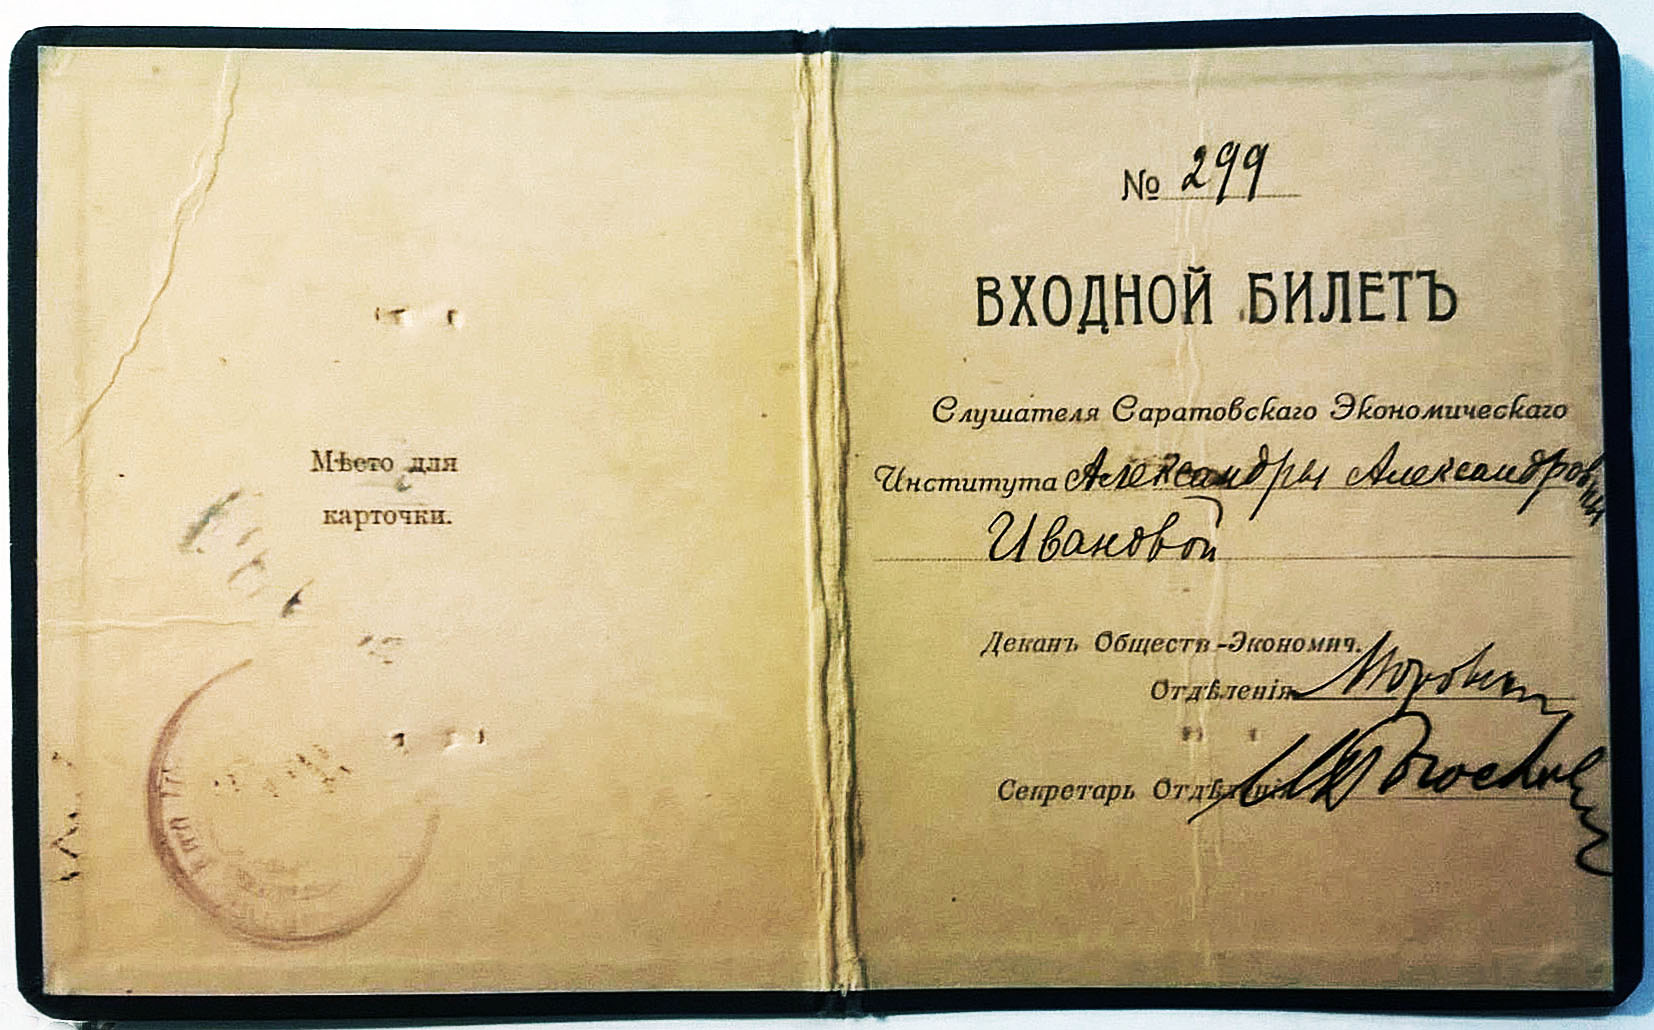 Мѣсто для
карточки.
№ 299
ВХОДНОЙ БИЛЕТЪ
Слушателя Саратовскаго Экономическаго
Института Александры Александровны
Ивановой
Деканъ Обществ-Экономич.
Отдѣленія
Секретарь Отдѣленія